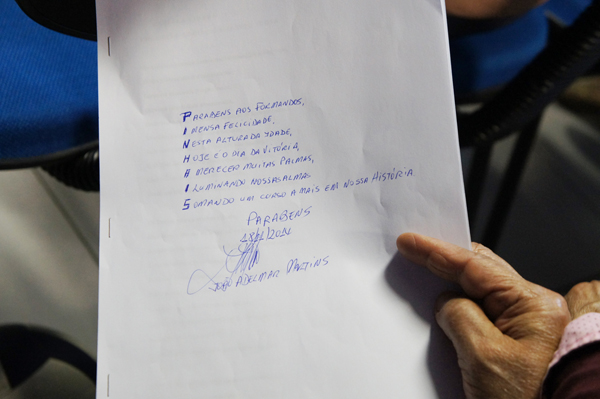 PARABENS AOS FORMANDOS,
IMENSA FELICIDADE,
NESTA ALTURA DA YDADE,
HOJE E O DIA DA VITÓRIA,
A MERECER MUITAS PALMAS,
ILUMINANDO NOSSAS ALMAS
SOMANDO UM CURSO A MAIS EM NOSSA HISTÓRIA.
PARABENS
JOÃO ADELMAR MARTINS